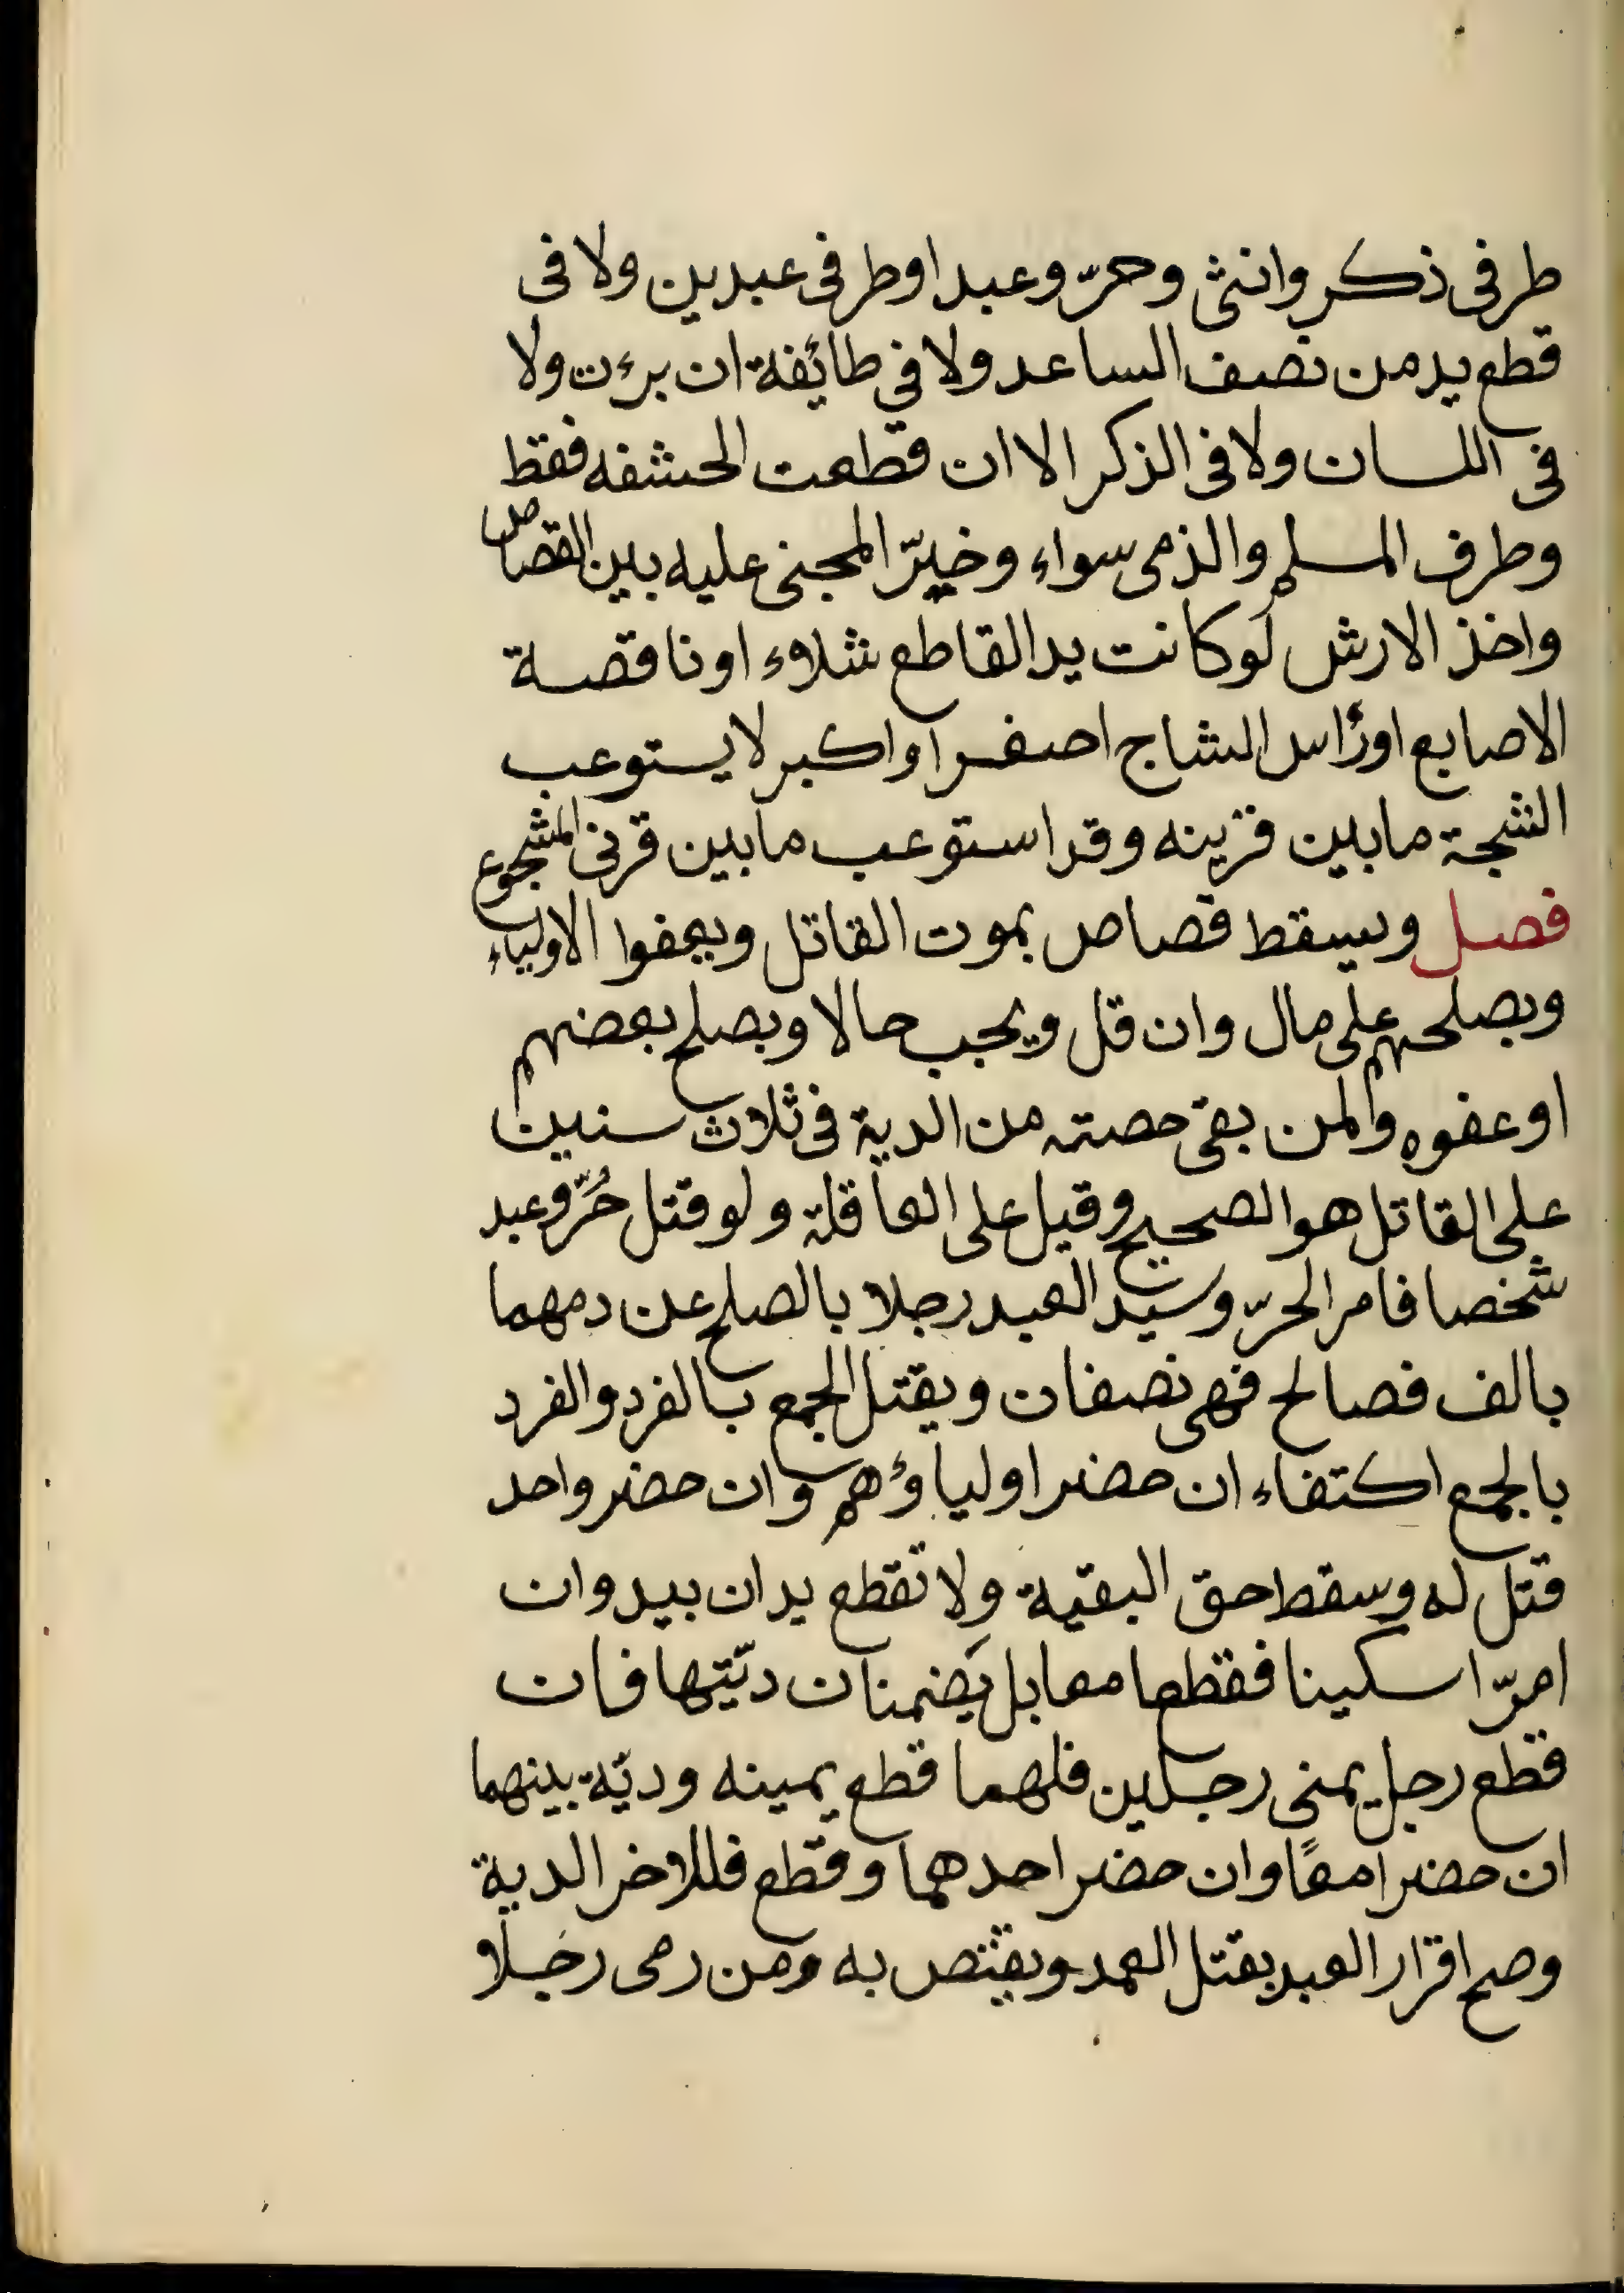 طرفى ذكر وانثى وحرّ وعبد اوطرفى عبدين ولا فى
قطع يد من نصف الساعد ولا في طائفة ان برءت ولا
فى اللسان ولا فى الذكر الا ان قطعت الحشفه فقط
وطرف المسلم والذمى سواء وخيّر المجنى عليه بين القصاص
واخذ الارش لوكانت يد القاطع شلاوء او ناقصة
الاصابع اورأس الشاج اصغر او اكبر لا يستوعب
الشجة ما بين قرينه وقد استوعب ما بين قرنى المشجوع
فصل ويسقط قصاص بموت القاتل وبعفوا الاولياء
وبصلحهم على مال وان قل ويجب حالا وبصلح بعضهم
او عفوه والمن بقى حصته من الدية فى ثلاث سنين
على القاتل هو الصحيح وقيل على العاقلة ولو قتل حُرّ وعبد
شخصا فامر الحرّ وسيّد العبد رجلا بالصلح عن دمهما
بالف فصالح فهى نصفان ويقتل الجمع بالفرد والفرد
بالجمع اكتفاء ان حضر اولياؤهم وان حضر واحد
قتل له وسقط حق البقية ولا تقطع يدان بيد وان
امرّا سكينا فقطعا معا بل يَضمنان ديّتها فان
قطع رجل يمنى رجلين فلهما قطع يمينه وديّة بينهما
ان حضرا معًا وان حضر احدهما وقطع فللاخر الدية
وصح اقرار العبد بقتل العمد ويقتص به ومن رمى رجلا